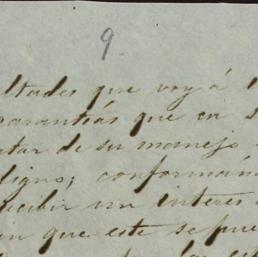 9.
ultades que voy á
garantias que en s
tar de su manejo
digno; conformán
recibir un interes
en que este se pue